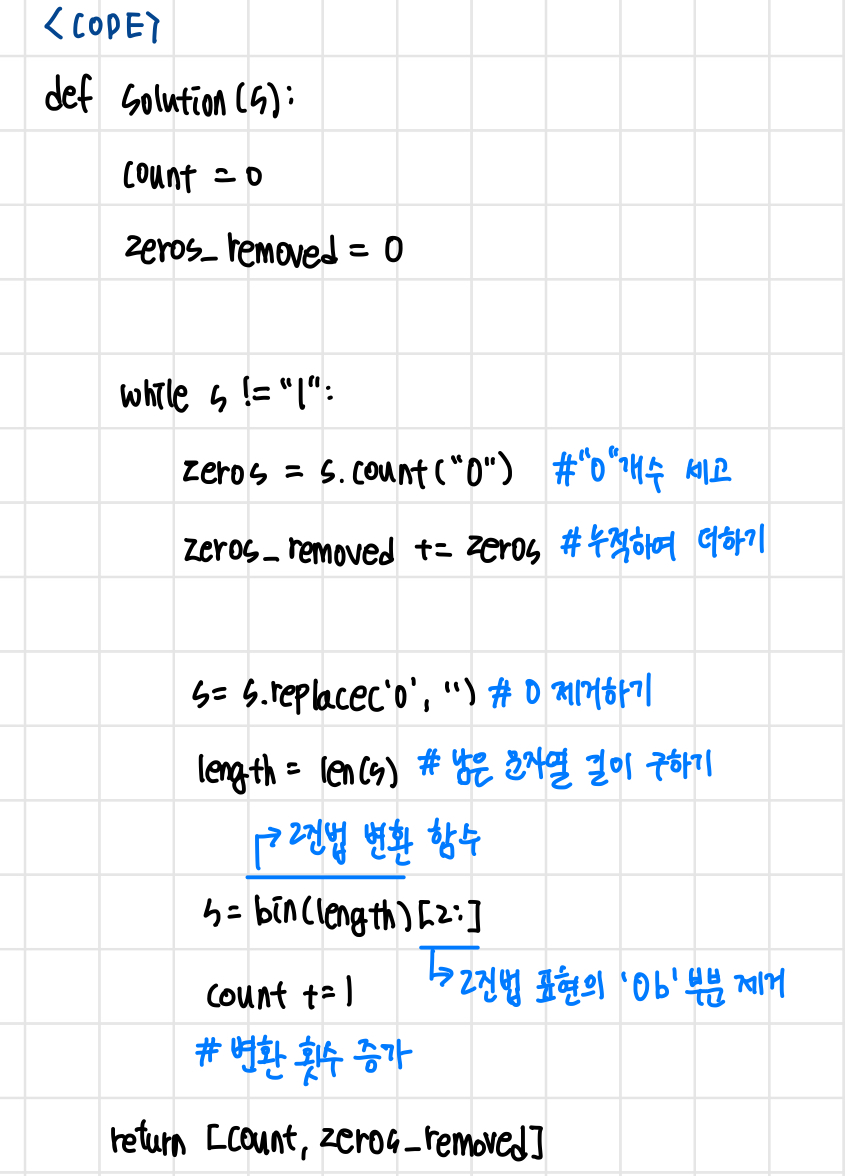 <CODE>
def solution(s):
count = 0
zeros_removed = 0
while s != "1":
zeros = s.count("0") #"0"개수 세고
zeros_removed += zeros #누적하여 더하기
s= s.replace('0', '') # 0 제거하기
length = len(s) # 남은 문자열 길이 구하기
→ 2진법 변환 함수
s= bin(length)[2:]
→ 2진법 표현의 '0b' 부분 제거
count += 1
# 변환 횟수 증가
return [count, zeros_removed]